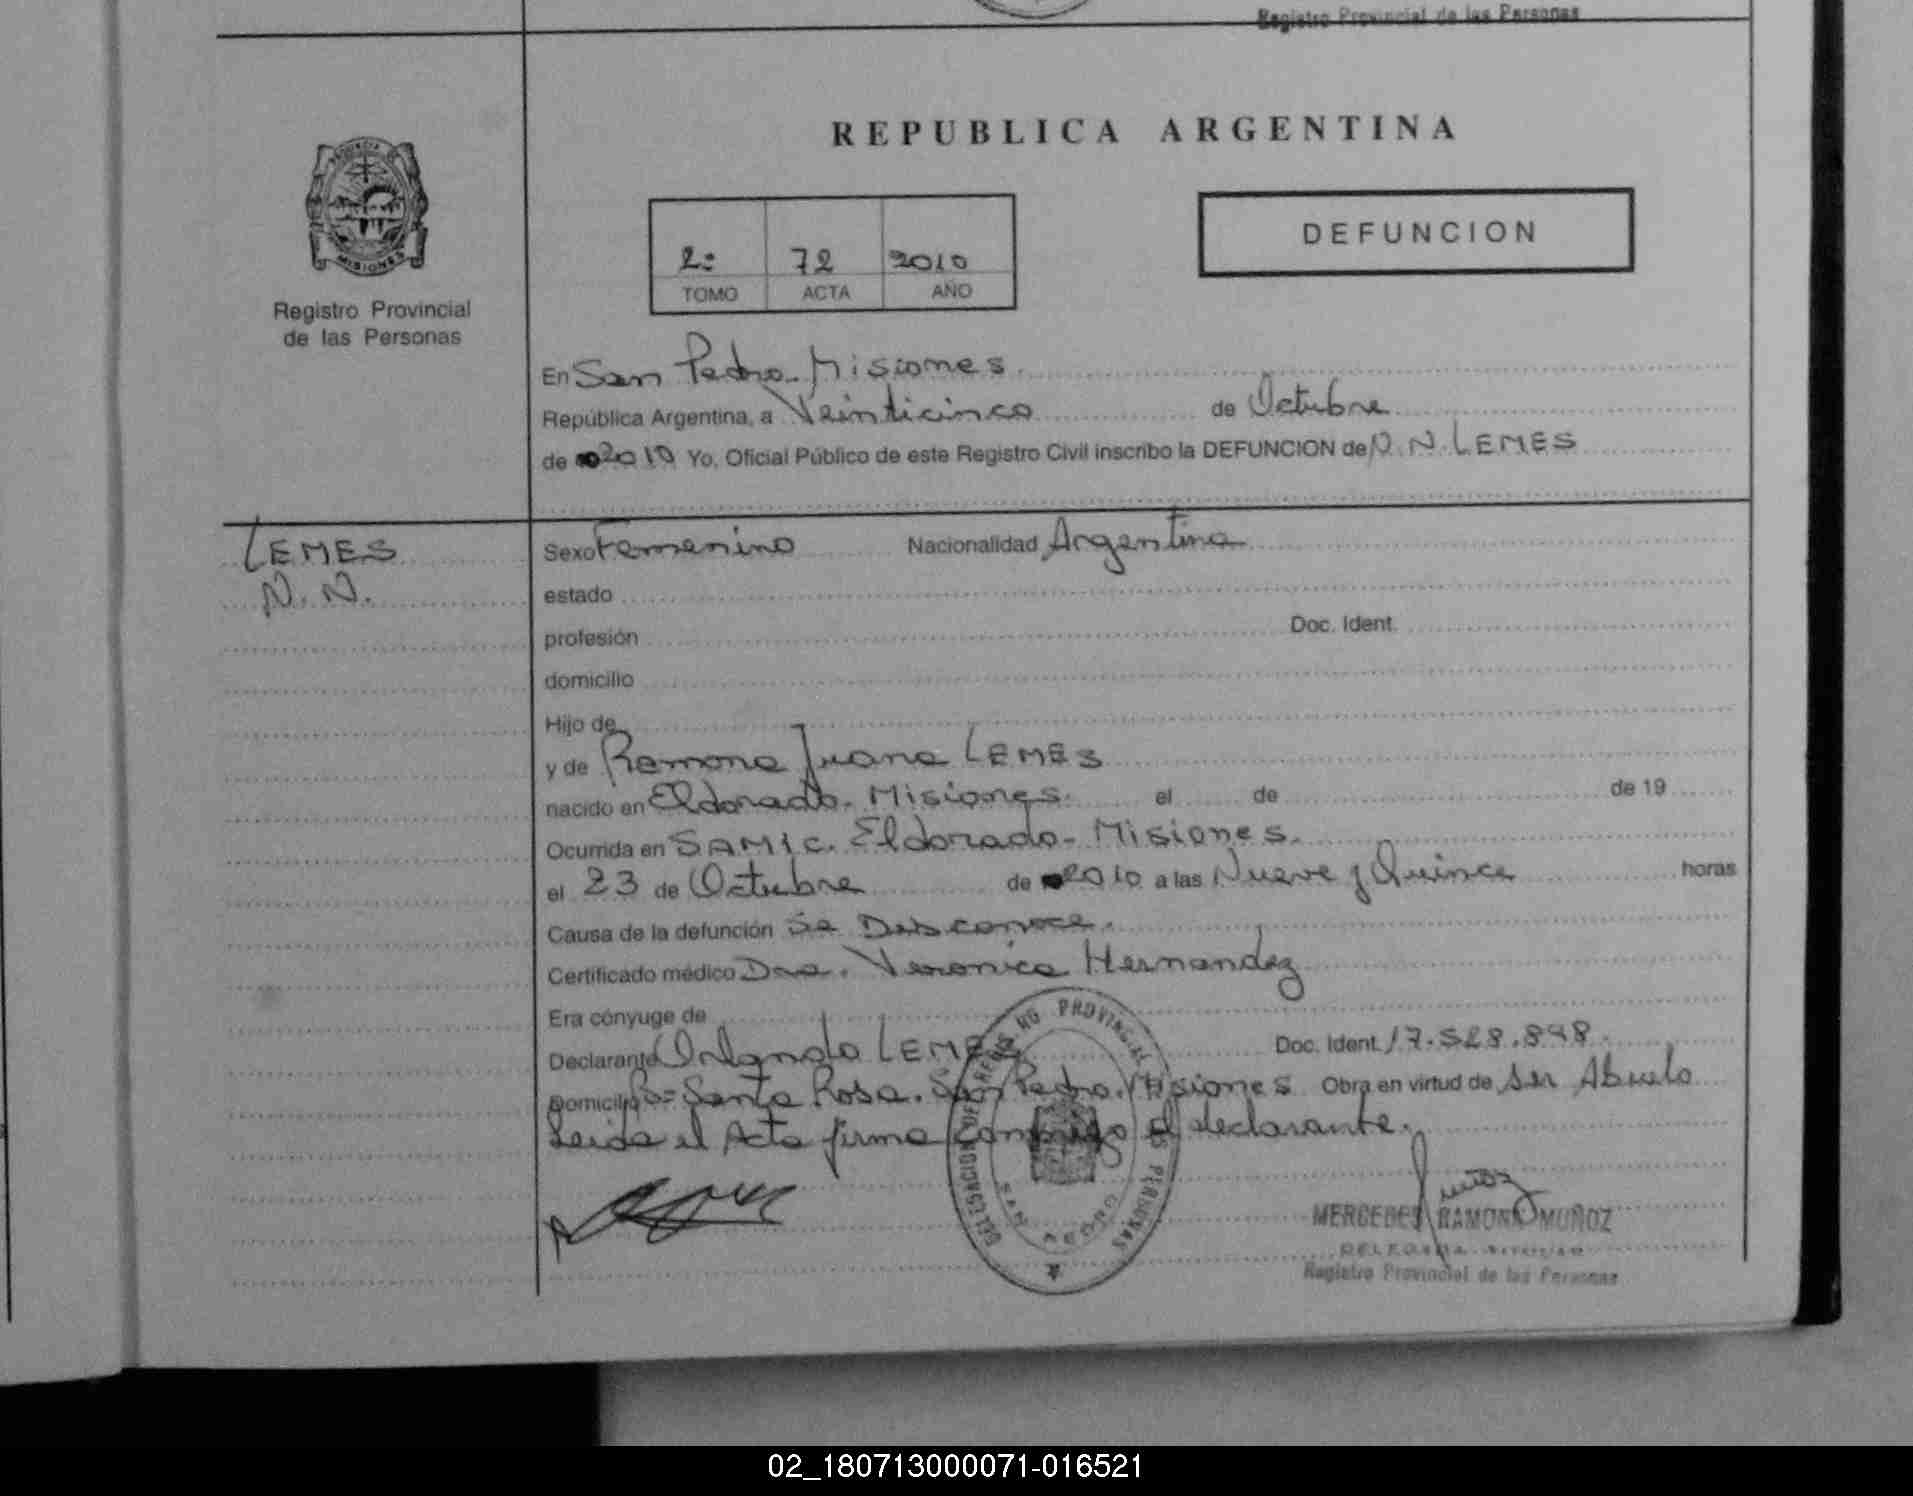 Registro Provincial de las Personas
REPUBLICA ARGENTINA
PROVINCIA DE
MISIONES
Registro Provincial
de las Personas
2º 72 2010
TOMO ACTA AÑO
DEFUNCION
En San Pedro - Misiones
República Argentina, a Veinticinco de Octubre
de 2010 Yo, Oficial Público de este Registro Civil inscribo la DEFUNCION de N. N. LEMES
LEMES
N. N.
Sexo Femenino Nacionalidad Argentina
estado
profesión Doc. Ident.
domicilio
Hijo de
y de Ramona Juana LEMES
nacido en Eldorado - Misiones el de de 19
Ocurrida en SAMIC. Eldorado - Misiones.
el 23 de Octubre de 2010 a las Nueve y Quince horas
Causa de la defunción Se Desconoce.
Certificado médico Dra. Veronica Hernandez
Era cónyuge de
Declarante Orlando LEMES Doc. Ident. 17.528.848
Domicilio Bº Santa Rosa. San Pedro. Misiones Obra en virtud de ser Abuelo
Leida el Acta firma conmigo el declarante.
DELEGACION DE REGIS RO PROVINCIAL DE PERSONAS
SAN PEDRO
Muñoz
MERCEDES RAMONA MUÑOZ
DELEGADA
Registro Provincial de las Personas
02_180713000071-016521